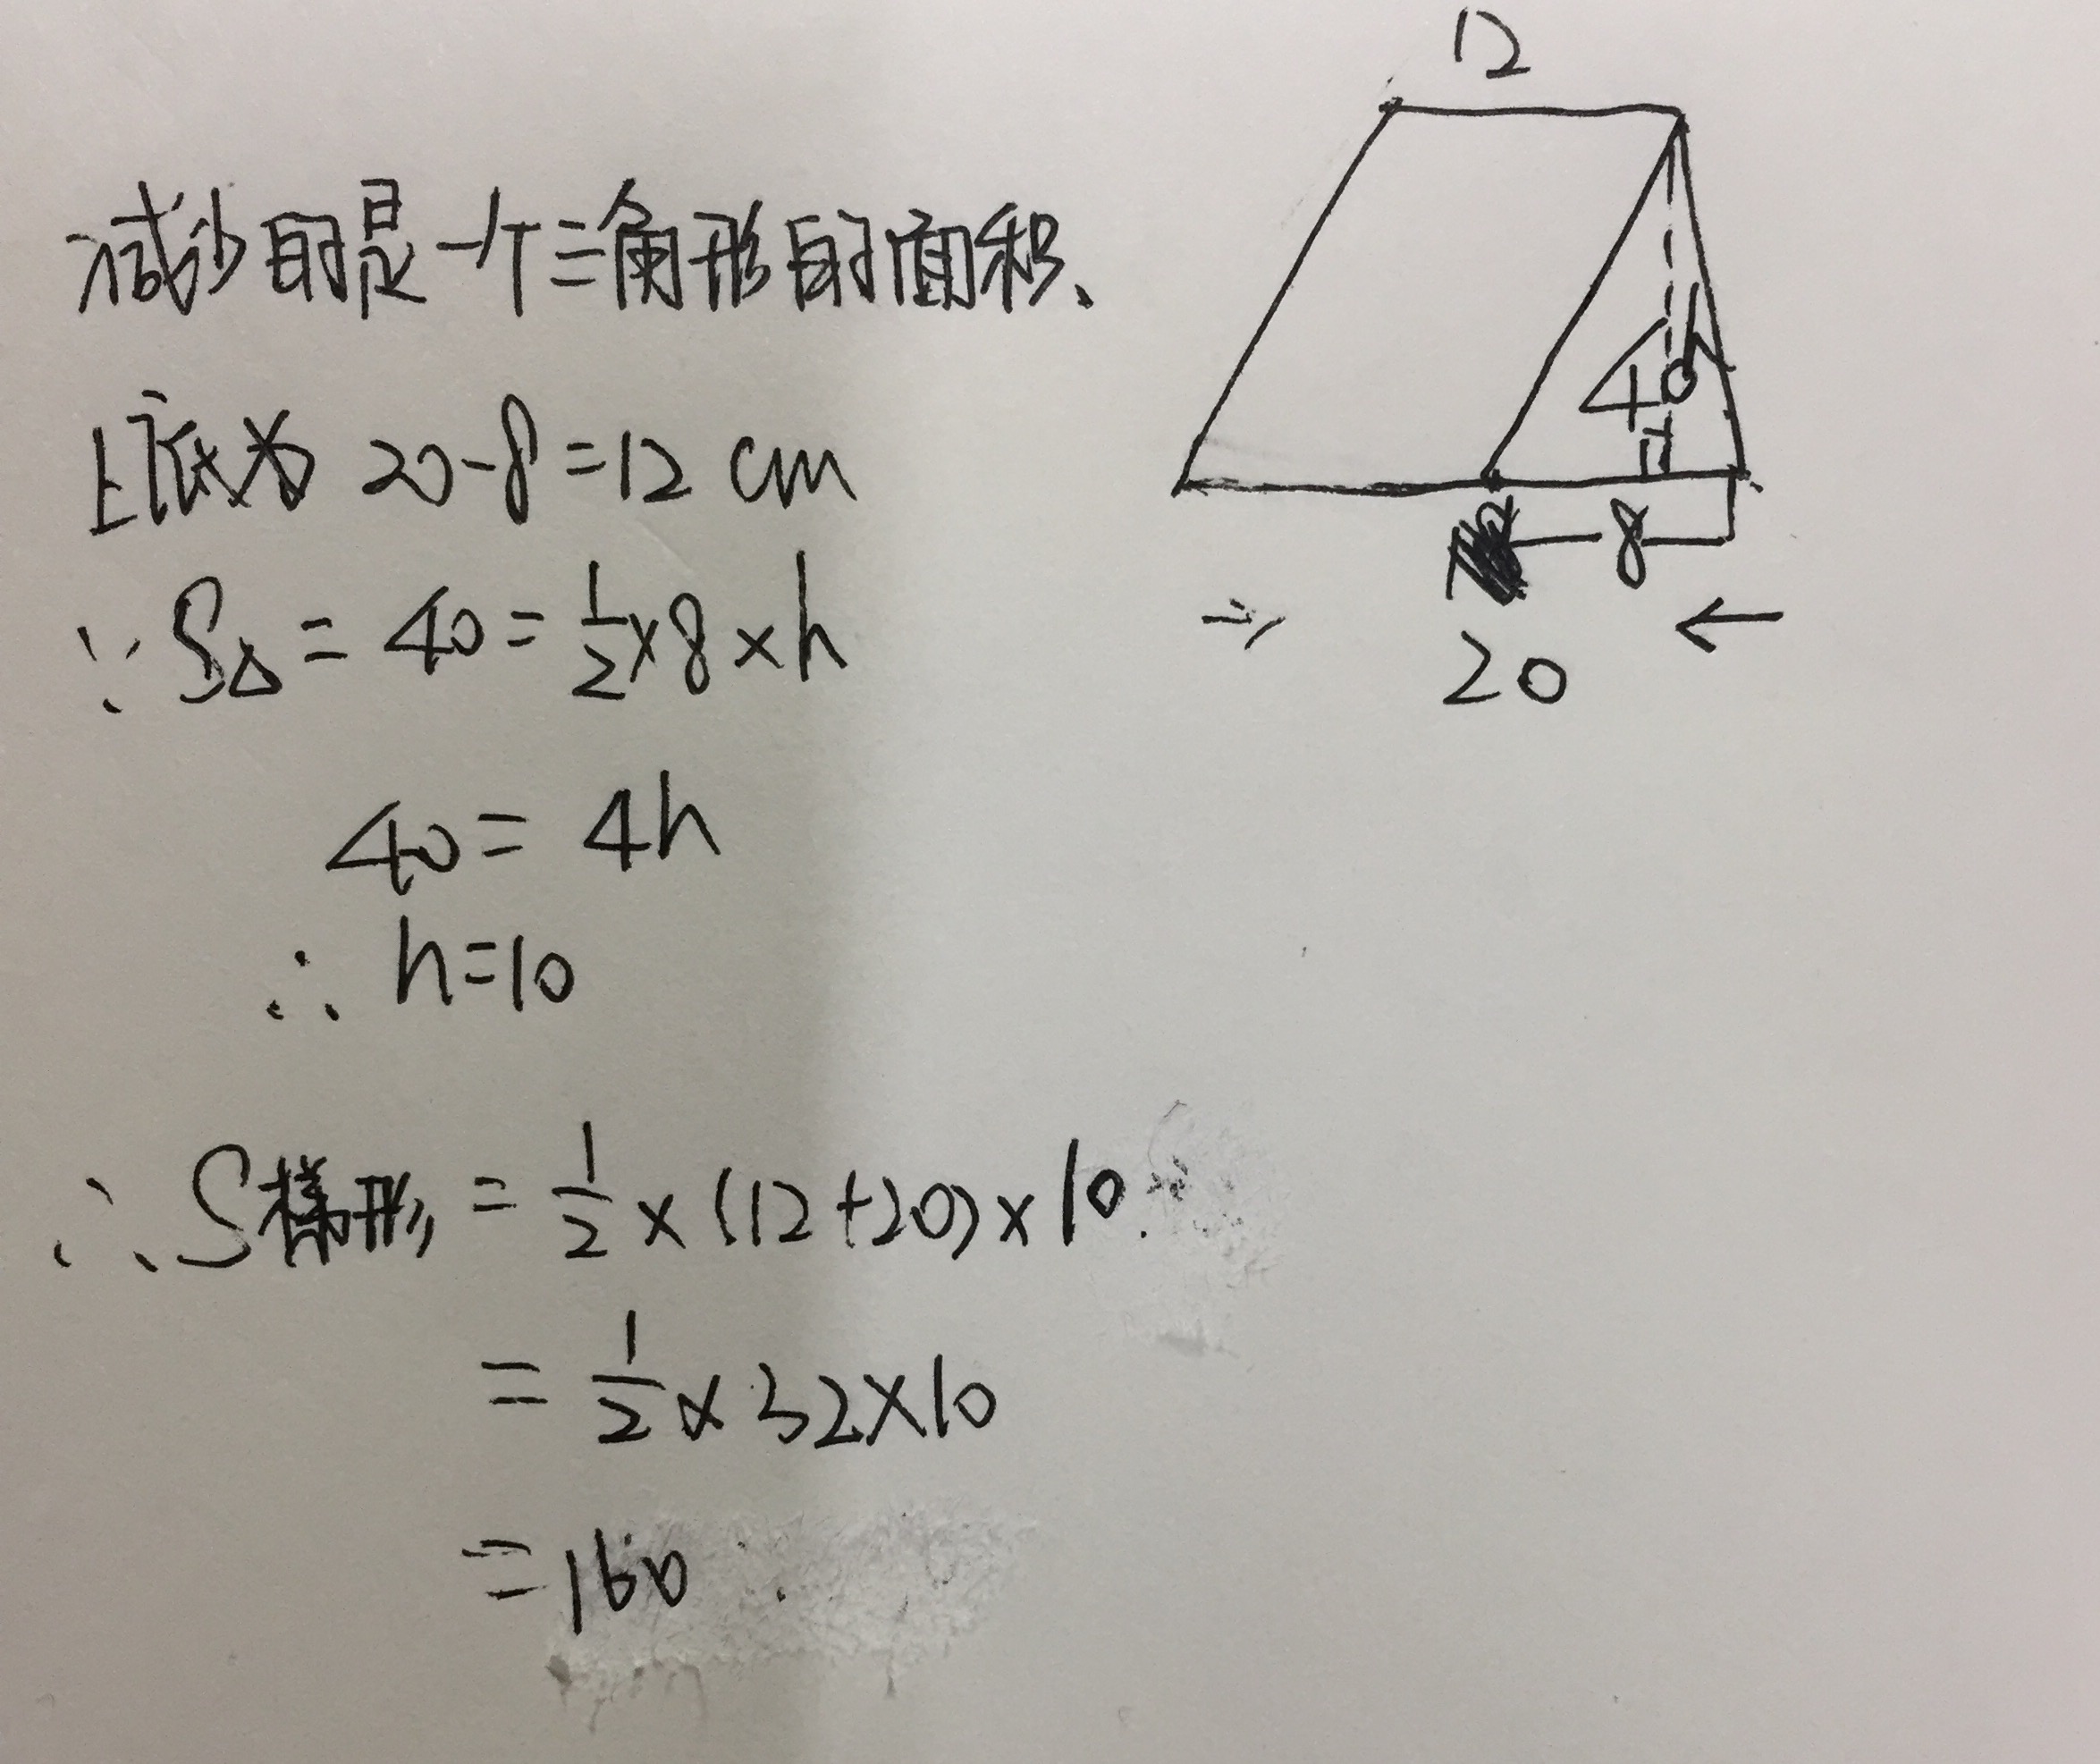 减少的是一个三角形的面积、
上底为 20-8=12 cm
∵ S△ = 40 = 1/2 × 8 × h
40 = 4h
∴ h=10
∴ S梯形 = 1/2 × (12+20) × 10
= 1/2 × 32 × 10
= 160
12
h
40
8
20